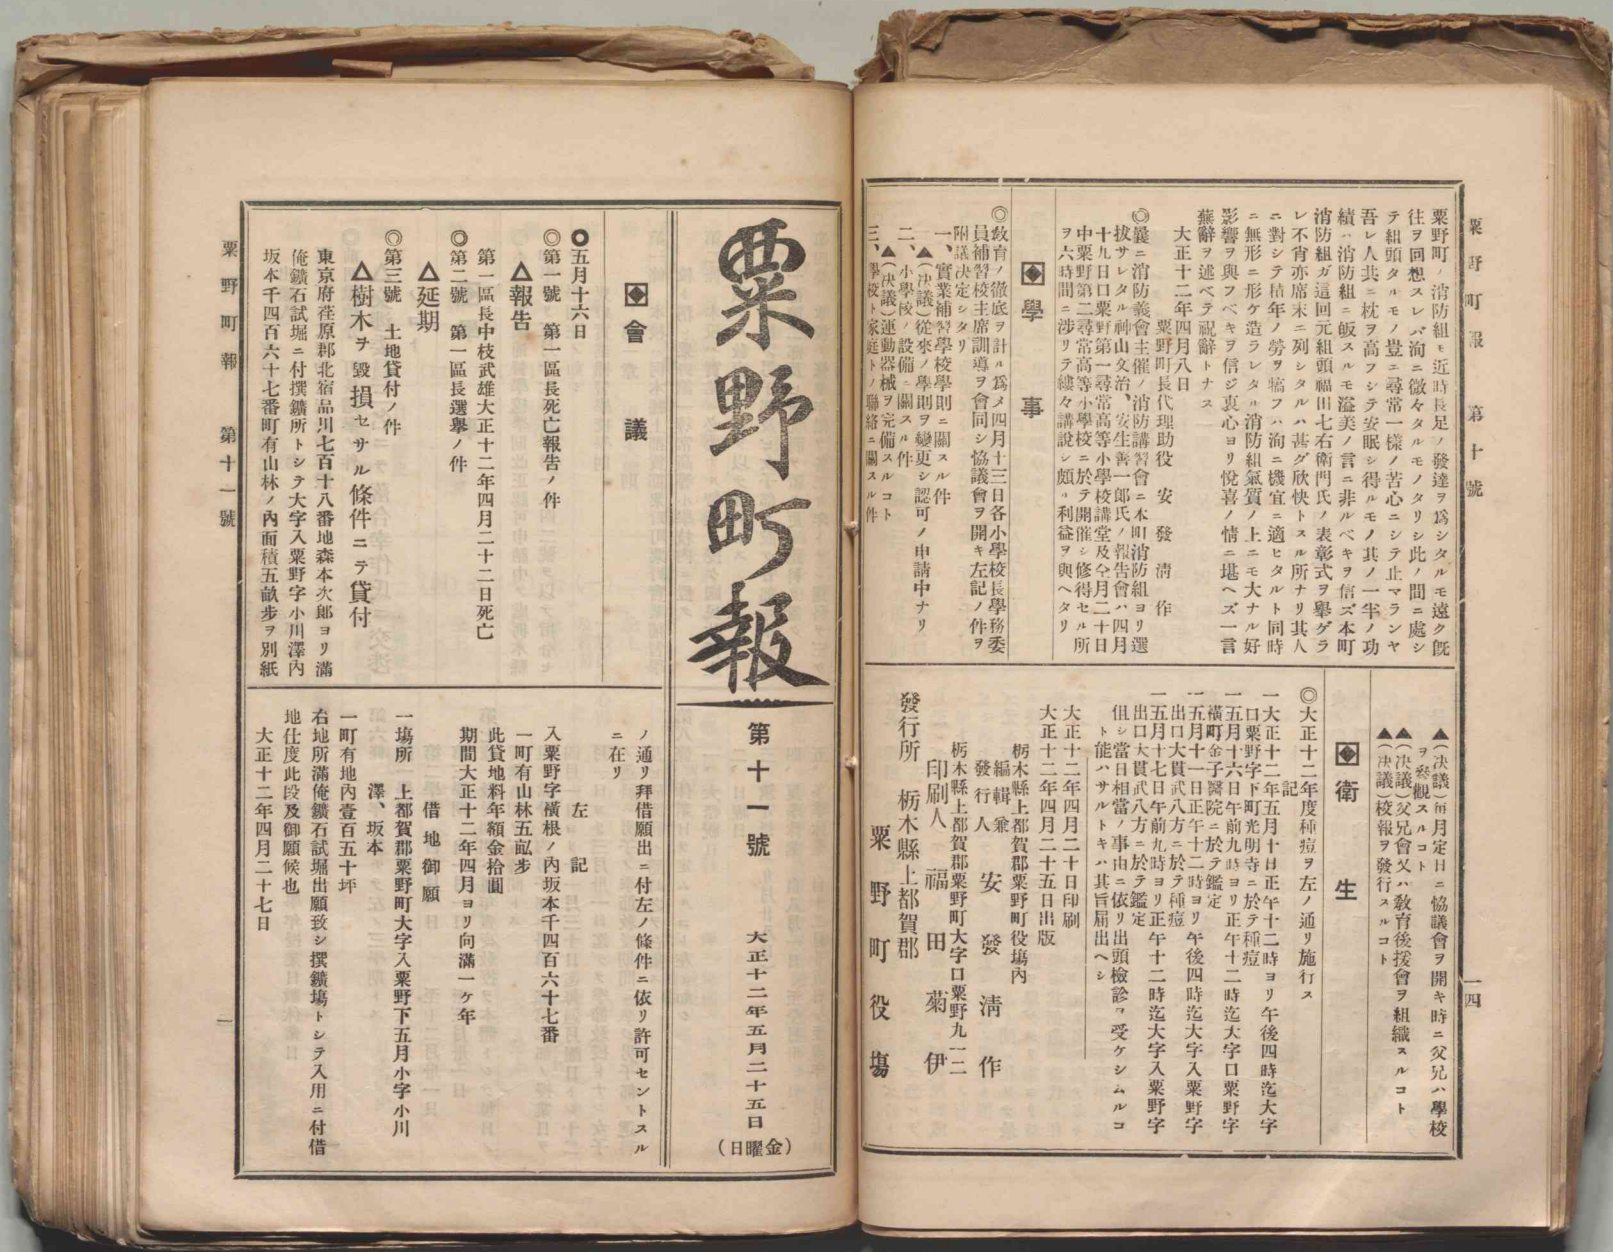 粟野町報 第十號
一四
粟野町ノ消防組モ近時長足ノ發達ヲ爲シタルモ遠ク旣
往ヲ回想スレバ洵ニ微々タルモノタリシ此ノ間ニ處シ
テ組頭タルモノ豈ニ尋常一樣ノ苦心ニシテ止マランヤ
吾レ人共ニ枕ヲ高フシテ安眠シ得ルモノ其ノ一半ノ功
績ハ消防組ニ皈スルモ溢美ノ言ニ非ルベキヲ信ズ本町
消防組ガ這回元組頭福田七右衞門氏ノ表彰式ヲ擧ゲラ
レ不肖亦席末ニ列シタルハ甚ダ欣快トスル所ナリ其人
ニ對シテ積年ノ勞ヲ犒フハ洵ニ機宜ニ適ヒタルト同時
ニ無形ニ形ケ造ラレタル消防組氣質ノ上ニモ大ナル好
影響ヲ與フベキヲ信ジ衷心ヨリ悅喜ノ情ニ堪ヘズ一言
蕪辭ヲ述ベテ祝辭トナス
大正十二年四月八日
粟野町長代理助役 安發淸作
◎曩ニ消防義會主催ノ消防講習會ニ本町消防組ヨリ選
拔サレタル神山文治、安生善一郞氏ノ報告會ハ四月
十九日口粟野第一尋常高等小學校講堂及仝月二十日
中粟野第二尋常高等小學校ニ於テ開催シ修得セル所
ヲ六時間ニ涉リテ縷々講說シ頗ル利益ヲ與ヘタリ
學事
◎敎育ノ徹底ヲ計ル爲メ四月十三日各小學校長學務委
員補習校主席訓導ヲ會同シ協議會ヲ開キ左記ノ件ヲ
附議決定シタリ
一、實業補習學校學則ニ關スル件
▲(決議)從來ノ學則ヲ變更シ認可ノ申請中ナリ
二、小學校ノ設備ニ關スル件
▲(決議)運動器械ヲ完備スルコト
三、學校ト家庭トノ聯絡ニ關スル件
▲(決議)每月定日ニ協議會ヲ開キ時ニ父兄ハ學校
ヲ參觀スルコト
▲(決議)父兄會又ハ敎育後援會ヲ組織スルコト
▲(決議)校報ヲ發行スルコト
衛生
◎大正十二年度種痘ヲ左ノ通リ施行ス
記
一大正十二年五月十日正午十二時ヨリ午後四時迄大字
口粟野字下町光明寺ニ於テ種痘
一五月十六日午前九時ヨリ正午十二時迄大字口粟野字
橫町金子醫院ニ於テ鑑定
一五月十一日正午十二時ヨリ午後四時迄大字入粟野字
出口大貫武八方ニ於テ種痘
一五月十七日午前九時ヨリ正午十二時迄大字入粟野字
出口大貫武八方ニ於テ鑑定
但シ當日相當ノ事由ニ依リ出頭檢診ヲ受ケシムルコ
ト能ハサルトキハ其旨屆出ヘシ
大正十二年四月二十日印刷
大正十二年四月二十五日出版
栃木縣上都賀郡粟野町役場內
編輯兼
發行人 安發淸作
栃木縣上都賀郡粟野町大字口粟野九一二
印刷人 福田菊伊
發行所 栃木縣上都賀郡
粟野町役場
粟野町報
第十一號
大正十二年五月二十五日
(金曜日)
會議
◎五月十六日
◎第一號 第一區長死亡報告ノ件
△報告
第一區長中枝武雄大正十二年四月二十二日死亡
◎第二號 第一區長選擧ノ件
△延期
◎第三號 土地貸付ノ件
△樹木ヲ毀損セサル條件ニテ貸付
東京府荏原郡北宿品川七百十八番地森本次郞ヨリ滿
俺鑛石試堀ニ付撰鑛所トシテ大字入粟野字小川澤內
坂本千四百六十七番町有山林ノ內面積五畝步ヲ別紙
ノ通リ拜借願出ニ付左ノ條件ニ依リ許可セントスル
ニ在リ
左記
入粟野字橫根ノ內坂本千四百六十七番
一町有山林五畝步
此貸地料年額金拾圓
期間大正十二年四月ヨリ向滿一ケ年
借地御願
一場所 上都賀郡粟野町大字入粟野下五月小字小川
澤、坂本
一町有地內壹百五十坪
右地所滿俺鑛石試堀出願致シ撰鑛場トシテ入用ニ付借
地仕度此段及御願候也
大正十二年四月二十七日
粟野町報 第十一號
一